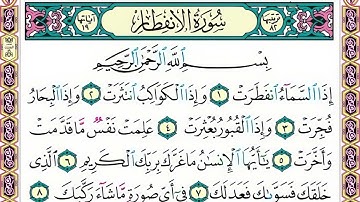 ترتيبها ٨٢ سُورَةُ الِانفِطَارِ آياتها ١٩
بِسْمِ ٱللَّهِ ٱلرَّحْمَٰنِ ٱلرَّحِيمِ
إِذَا ٱلسَّمَآءُ ٱنفَطَرَتْ ١ وَإِذَا ٱلْكَوَاكِبُ ٱنتَثَرَتْ ٢ وَإِذَا ٱلْبِحَارُ
فُجِّرَتْ ٣ وَإِذَا ٱلْقُبُورُ بُعْثِرَتْ ٤ عَلِمَتْ نَفْسٌ مَّا قَدَّمَتْ
وَأَخَّرَتْ ٥ يَٰٓأَيُّهَا ٱلْإِنسَٰنُ مَا غَرَّكَ بِرَبِّكَ ٱلْكَرِيمِ ٦ ٱلَّذِى
خَلَقَكَ فَسَوَّىٰكَ فَعَدَلَكَ ٧ فِىٓ أَىِّ صُورَةٍ مَّا شَآءَ رَكَّبَكَ ٨